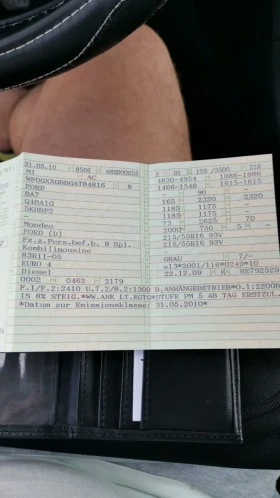 31.05.10 8566 ANSD00005 2 01 120 /3500 216
M1 AC 4830-4954 1886-1886
WF0GXXGBBGAT84816 8 1466-1548 1615-1615
FORD - 90 -
BA7 165 2320 2320
Q4BA1G 1185 1175 -
5KBBP2 1185 1175 -
- 73 2625 70
Mondeo 2000 750 5 -
FORD (D) 215/55R16 93V
Fz.z.Pers.bef.b. 8 Spl. 215/55R16 93V
Kombilimousine -
83R11-05 GRAU 7/-
EURO 4 e13*2001/116*0249*10
Diesel 22.12.09 K HE792529
0002 0462 2179
F.1/F.2:2410 U.7.2/8.2:1300 B.ANHÄNGEBETRIEB*O.1:2200B
IS 8% STEIG.*WW.AHK LT.EGTG*STUFE PM 5 AB TAG ERSTZUL
*Datum zur Emissionsklasse: 31.05.2010*